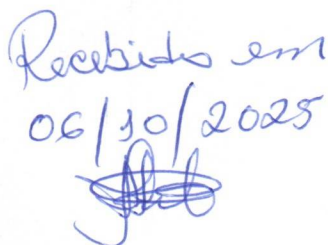 Recebido em
06/10/2025